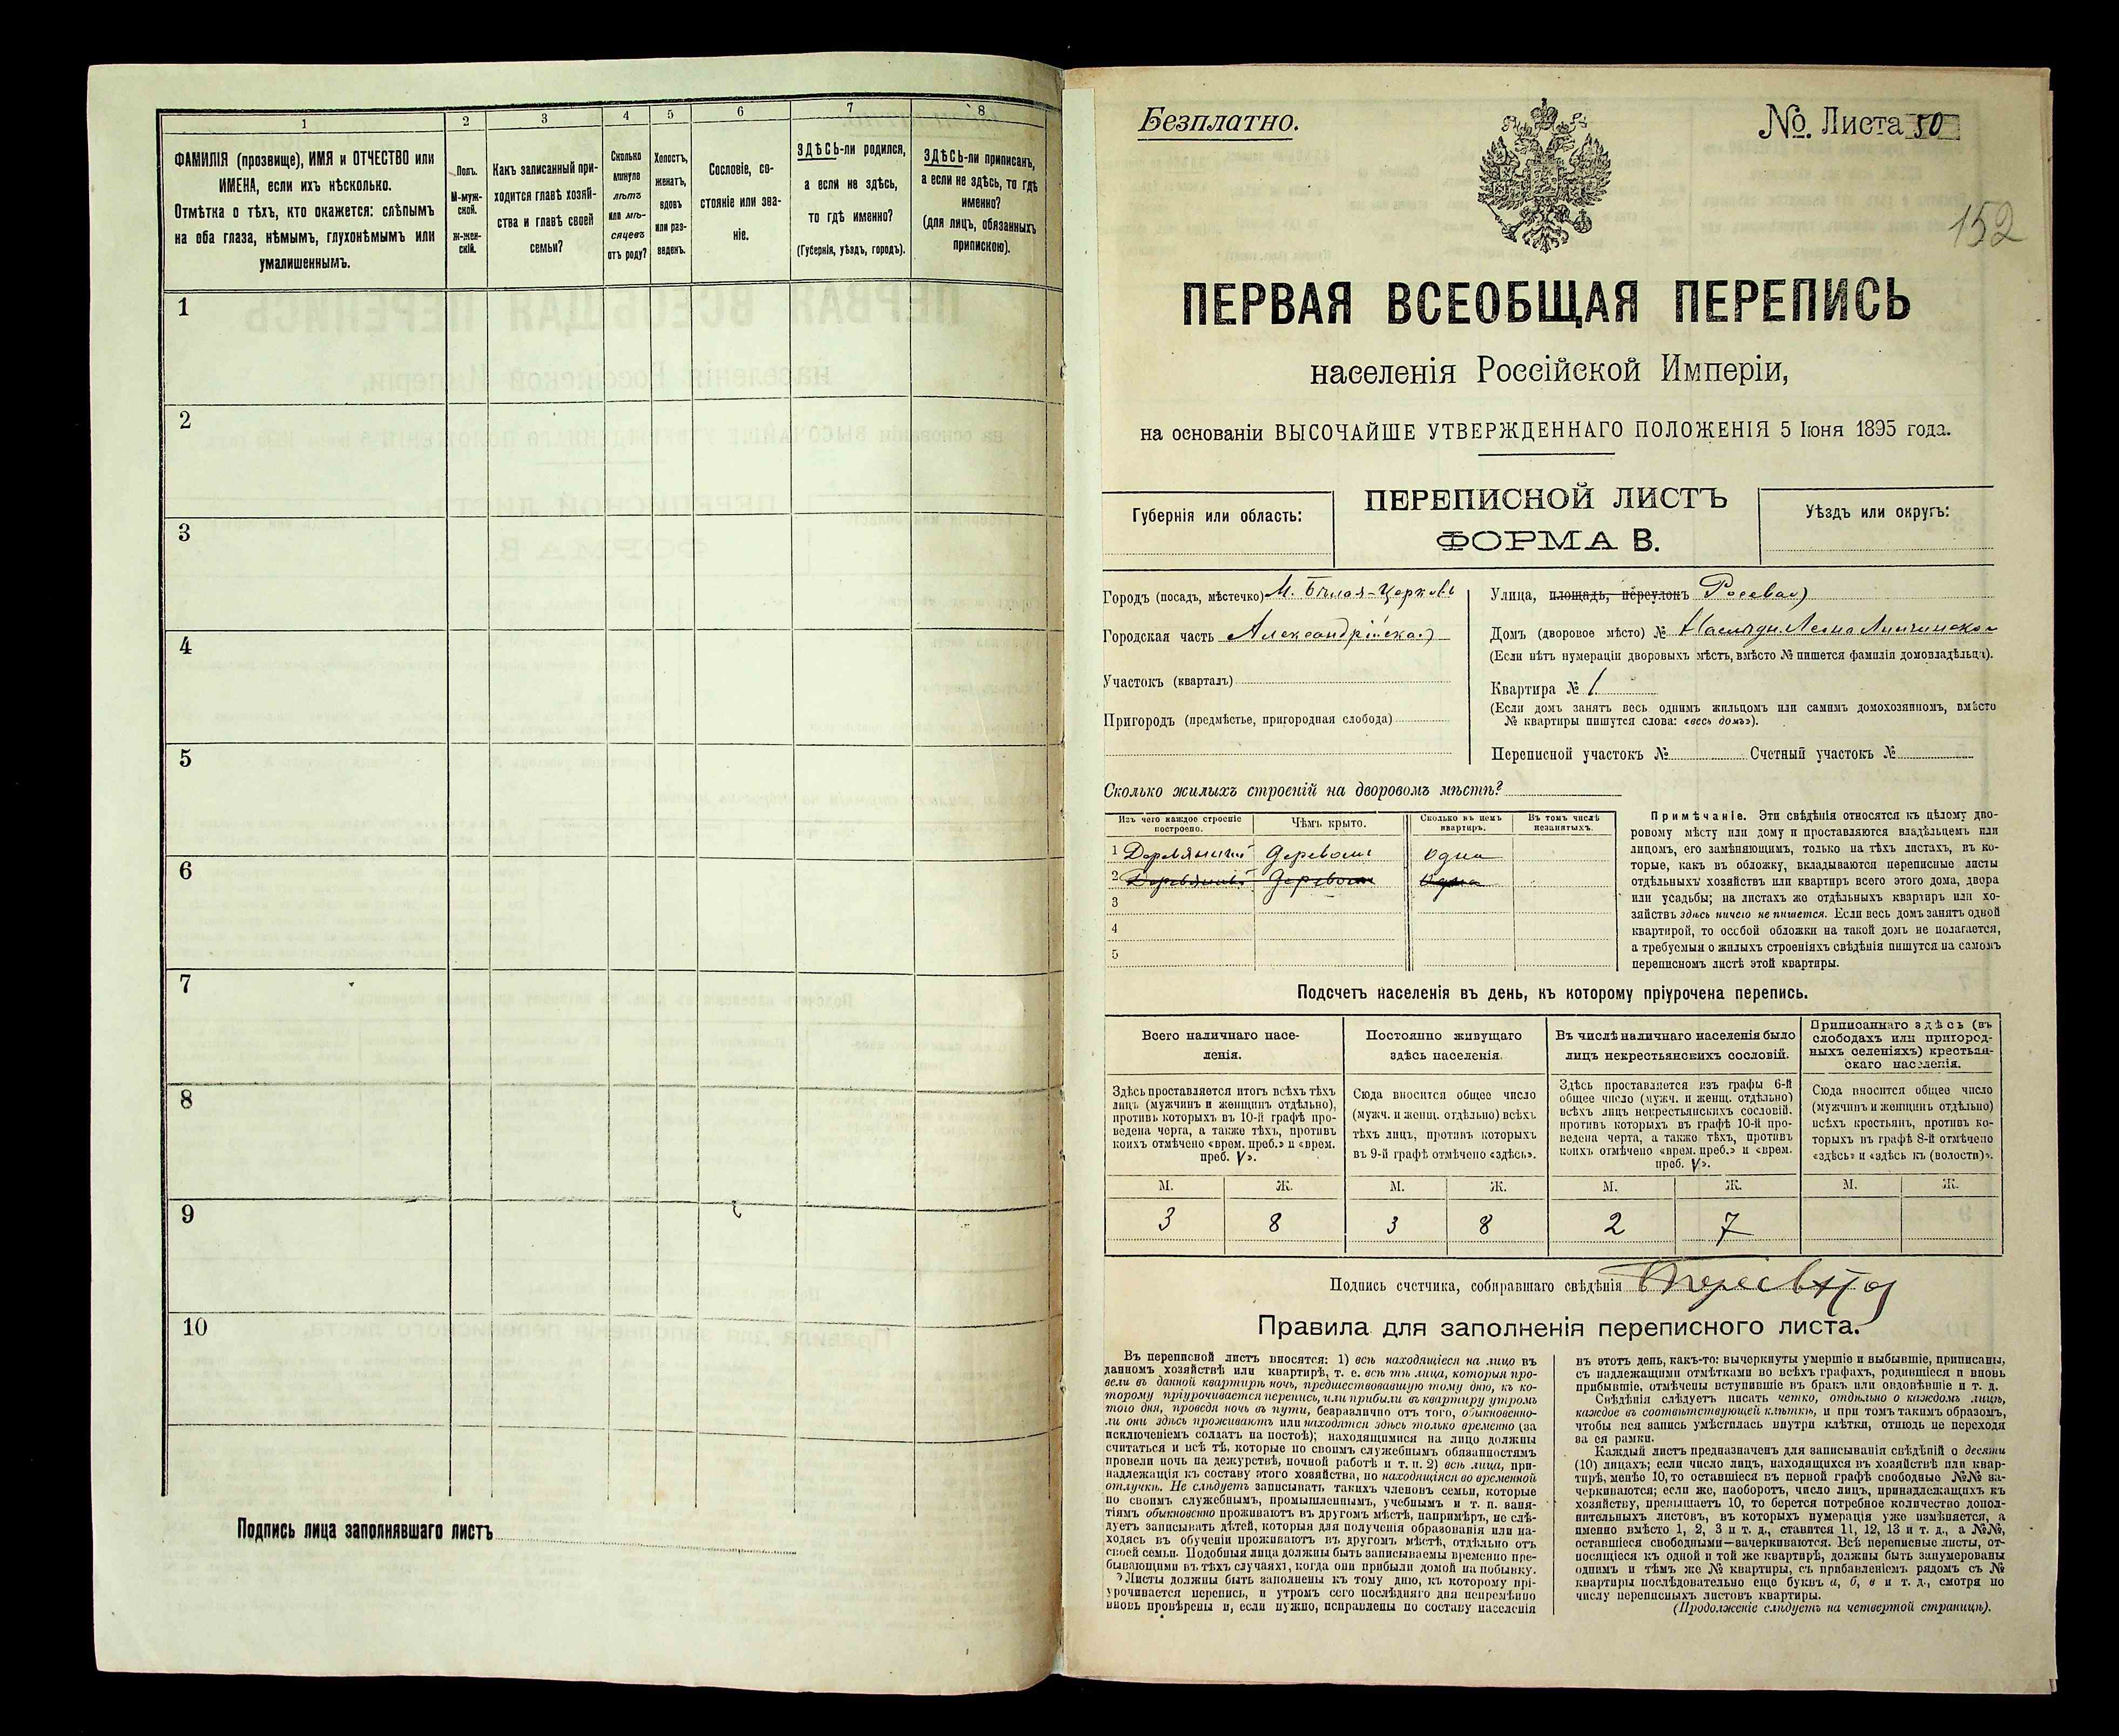 1
2
3
4
5
6
7
8
ФАМИЛІЯ (прозвище), ИМЯ и ОТЧЕСТВО или
ИМЕНА, если ихъ нѣсколько.
Отмѣтка о тѣхъ, кто окажется: слѣпымъ
на оба глаза, нѣмымъ, глухонѣмымъ или
умалишеннымъ.
Полъ.
М-муж-
ской.
Ж-жен-
скій.
Какъ записанный при-
ходится главѣ хозяй-
ства и главѣ своей
семьи?
Сколько
минуло
лѣтъ
или мѣ-
сяцевъ
отъ роду?
Холостъ,
женатъ,
вдовъ
или раз-
веденъ.
Сословіе, со-
стояніе или зва-
ніе.
ЗДѢСЬ-ли родился,
а если не здѣсь,
то гдѣ именно?
(Губернія, уѣздъ, городъ).
ЗДѢСЬ-ли приписанъ,
а если не здѣсь, то гдѣ
именно?
(для лицъ, обязанныхъ
припискою).
1
2
3
4
5
6
7
8
9
10
Подпись лица заполнявшаго листъ
Безплатно.
№. Листа 50
152
ПЕРВАЯ ВСЕОБЩАЯ ПЕРЕПИСЬ
населенія Россійской Имперіи,
на основаніи ВЫСОЧАЙШЕ УТВЕРЖДЕННАГО ПОЛОЖЕНІЯ 5 Іюня 1895 года.
Губернія или область:
ПЕРЕПИСНОЙ ЛИСТЪ
ФОРМА В.
Уѣздъ или округъ:
Городъ (посадъ, мѣстечко) М. Бѣлая-Церковь
Городская часть Александрійская
Участокъ (кварталъ)
Пригородъ (предмѣстье, пригородная слобода)
Улица, площадь, переулокъ Росевая
Домъ (дворовое мѣсто) №
(Если нѣтъ нумераціи дворовыхъ мѣстъ, вмѣсто № пишется фамилія домовладѣльца).
Квартира № 1
(Если домъ занятъ весь однимъ жильцомъ или самимъ домохозяиномъ, вмѣсто
№ квартиры пишутся слова: «весь домъ»).
Переписной участокъ № Счетный участокъ №
Сколько жилыхъ строеній на дворовомъ мѣстѣ?
Изъ чего каждое строеніе
построено.
Чѣмъ крыто.
Сколько въ немъ
квартиръ.
Въ томъ числѣ
незанятыхъ.
1 Деревянный деревомъ одна
2 Деревянный деревомъ одна
3
4
5
Примѣчаніе. Эти свѣдѣнія относятся къ цѣлому дво-
ровому мѣсту или дому и проставляются владѣльцемъ или
лицомъ, его замѣняющимъ, только на тѣхъ листахъ, въ ко-
торые, какъ въ обложку, вкладываются переписные листы
отдѣльныхъ хозяйствъ или квартиръ всего этого дома, двора
или усадьбы; на листахъ же отдѣльныхъ квартиръ или хо-
зяйствъ здѣсь ничего не пишется. Если весь домъ занятъ одной
квартирой, то особой обложки на такой домъ не полагается,
а требуемыя о жилыхъ строеніяхъ свѣдѣнія пишутся на самомъ
переписномъ листѣ этой квартиры.
Подсчетъ населенія въ день, къ которому пріурочена перепись.
Всего наличнаго насе-
ленія.
Постоянно живущаго
здѣсь населенія.
Въ числѣ наличнаго населенія было
лицъ некрестьянскихъ сословій.
Приписаннаго здѣсь (въ
слободахъ или пригород-
ныхъ селеніяхъ) крестьян-
скаго населенія.
Здѣсь проставляется итогъ всѣхъ тѣхъ
лицъ (мужчинъ и женщинъ отдѣльно),
противъ которыхъ въ 10-й графѣ про-
ведена черта, а также тѣхъ, противъ
коихъ отмѣчено «врем. преб.» и «врем.
преб. V».
Сюда вносится общее число
(мужч. и женщ. отдѣльно) всѣхъ
тѣхъ лицъ, противъ которыхъ
въ 9-й графѣ отмѣчено «здѣсь».
Здѣсь проставляется изъ графы 6-й
общее число (мужч. и женщ. отдѣльно)
всѣхъ лицъ некрестьянскихъ сословій.
противъ которыхъ въ графѣ 10-й про-
ведена черта, а также тѣхъ, противъ
коихъ отмѣчено «врем. преб.» и «врем.
преб. V».
Сюда вносится общее число
(мужчинъ и женщинъ отдѣльно)
всѣхъ крестьянъ, противъ ко-
торыхъ въ графѣ 8-й отмѣчено
«здѣсь» и «здѣсь къ (волости)».
М. Ж. М. Ж. М. Ж. М. Ж.
3 8 3 8 2 7
Подпись счетчика, собиравшаго свѣдѣнія
Правила для заполненія переписного листа.
Въ переписной листъ вносятся: 1) всѣ находящіеся на лицо въ
данномъ хозяйствѣ или квартирѣ, т. е. всѣ тѣ лица, которыя про-
вели въ данной квартирѣ ночь, предшествовавшую тому дню, къ ко-
торому пріурочивается перепись, или прибыли въ квартиру утромъ
того дня, проведя ночь въ пути, безразлично отъ того, обыкновенно-
ли они здѣсь проживаютъ или находятся здѣсь только временно (за
исключеніемъ солдатъ на постоѣ); находящимися на лицо должны
считаться и всѣ тѣ, которые по своимъ служебнымъ обязанностямъ
провели ночь на дежурствѣ, ночной работѣ и т. п. 2) всѣ лица, при-
надлежащія къ составу этого хозяйства, но находящіяся во временной
отлучкѣ. Не слѣдуетъ записывать такихъ членовъ семьи, которые
по своимъ служебнымъ, промышленнымъ, учебнымъ и т. п. заня-
тіямъ обыкновенно проживаютъ въ другомъ мѣстѣ, напримѣръ, не слѣ-
дуетъ записывать дѣтей, которыя для полученія образованія или на-
ходясь въ обученіи проживаютъ въ другомъ мѣстѣ, отдѣльно отъ
своей семьи. Подобныя лица должны быть записываемы временно пре-
бывающими въ тѣхъ случаяхъ, когда они прибыли домой на побывку.
Листы должны быть заполнены къ тому дню, къ которому прі-
урочивается перепись, и утромъ сего послѣдняго дня непремѣнно
вновь провѣрены и, если нужно, исправлены по составу населенія
въ этотъ день, какъ-то: вычеркнуты умершіе и выбывшіе, приписаны,
съ надлежащими отмѣтками во всѣхъ графахъ, родившіеся и вновь
прибывшіе, отмѣчены вступившіе въ бракъ или овдовѣвшіе и т. д.
Свѣдѣнія слѣдуетъ писать четко, отдѣльно о каждомъ лицѣ,
каждое въ соотвѣтствующей клѣткѣ, и при томъ такимъ образомъ,
чтобы вся запись умѣстилась внутри клѣтки, отнюдь не переходя
за ея рамки.
Каждый листъ предназначенъ для записыванія свѣдѣній о десяти
(10) лицахъ; если число лицъ, находящихся въ хозяйствѣ или квар-
тирѣ, менѣе 10, то оставшіеся въ первой графѣ свободные №№ за-
черкиваются; если же, наоборотъ, число лицъ, принадлежащихъ къ
хозяйству, превышаетъ 10, то берется потребное количество допол-
нительныхъ листовъ, въ которыхъ нумерація уже измѣняется, а
именно вмѣсто 1, 2, 3 и т. д., ставится 11, 12, 13 и т. д., а №№,
оставшіеся свободными—зачеркиваются. Всѣ переписные листы, от-
носящіеся къ одной и той же квартирѣ, должны быть занумерованы
однимъ и тѣмъ же № квартиры, съ прибавленіемъ рядомъ съ №
квартиры послѣдовательно еще буквъ а, б, в и т. д., смотря по
числу переписныхъ листовъ квартиры.
(Продолженіе слѣдуетъ на четвертой страницѣ).